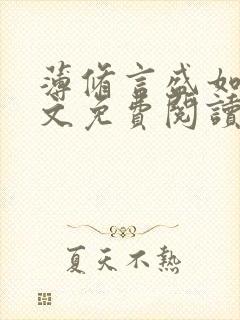 薄脩言盛如
文免費閱讀
夏天不熱